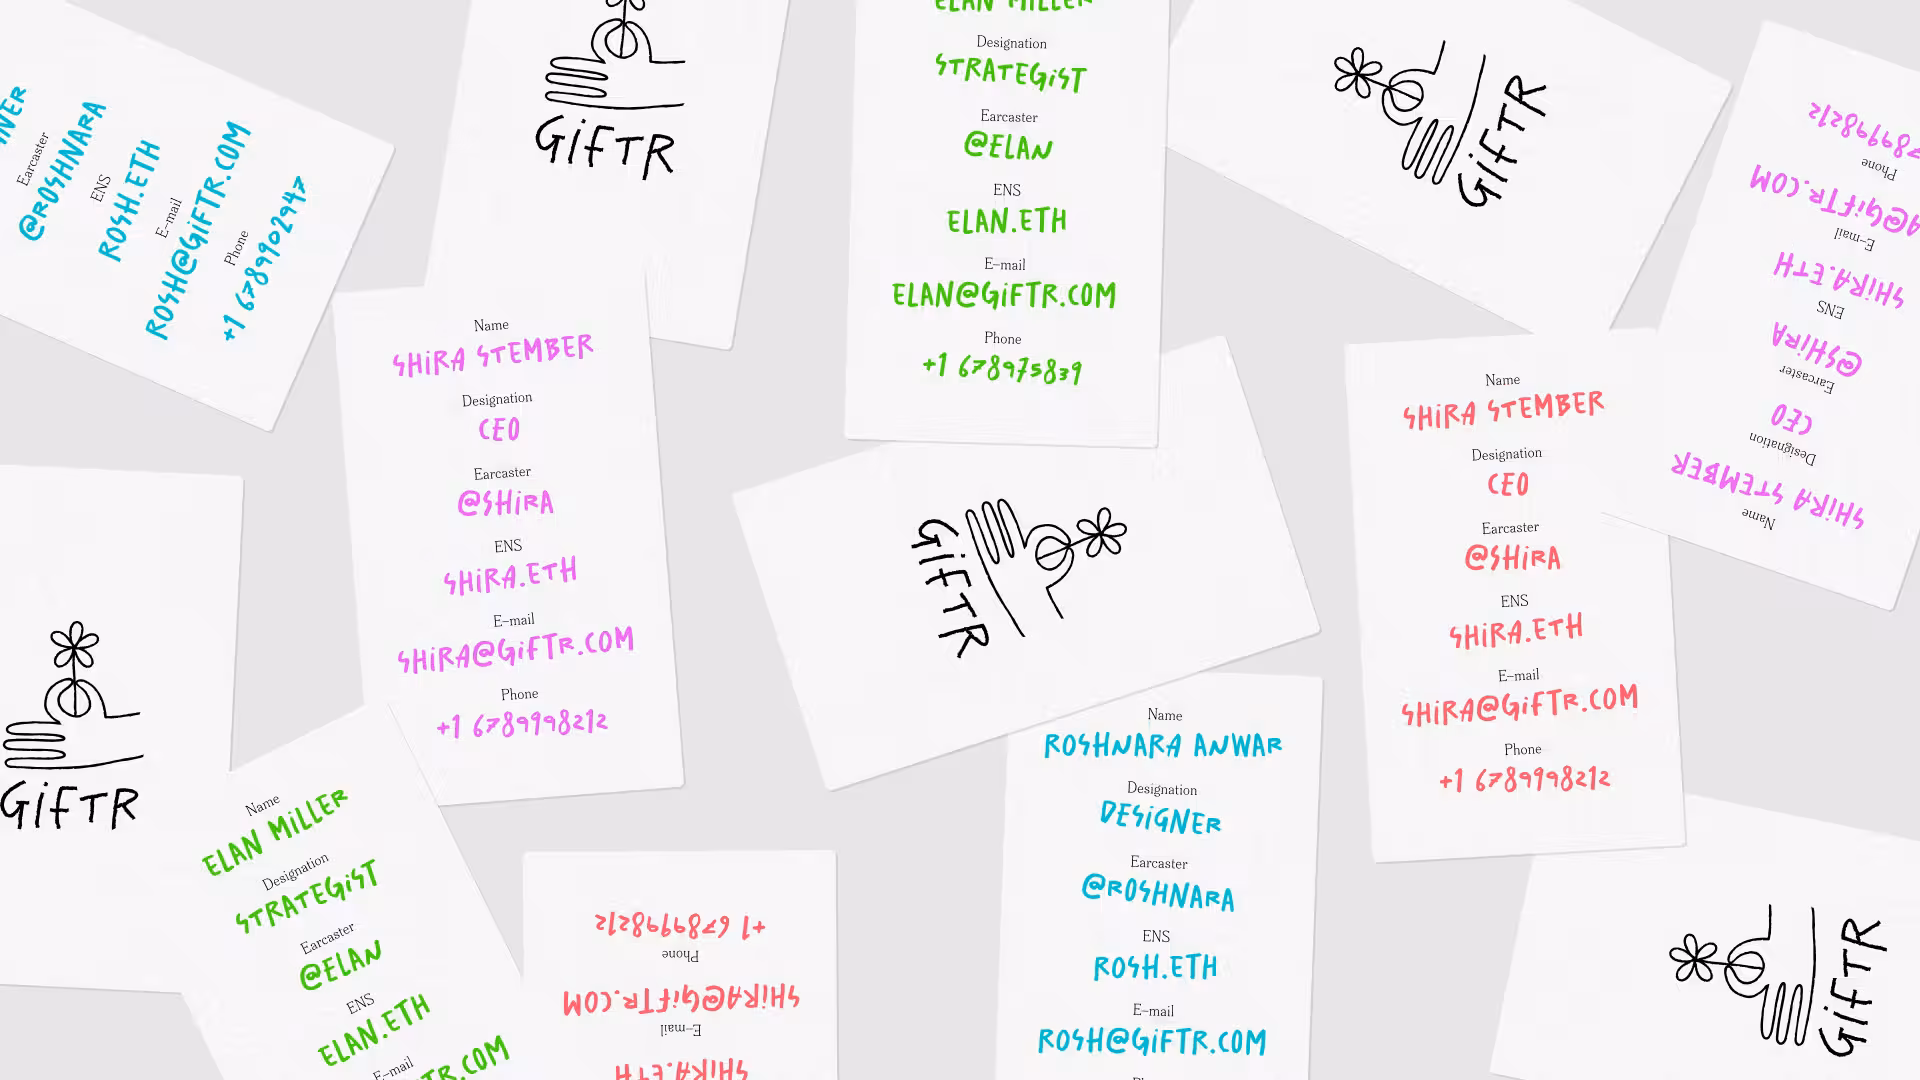 @ROSHNARA
ENS
ROSH.ETH
E-mail
ROSH@GiFTR.COM
Phone
+1 6789902947
Earcaster
GiFTR
ELAN MiLLER
Designation
STRATEGiST
Earcaster
@ELAN
ENS
ELAN.ETH
E-mail
ELAN@GiFTR.COM
Phone
+1 678975839
GiFTR
Name
SHiRA STEMBER
Designation
CEO
Earcaster
@SHiRA
ENS
SHiRA.ETH
E-mail
@GiFTR.COM
Phone
Name
SHiRA STEMBER
Designation
CEO
Earcaster
@SHiRA
ENS
SHiRA.ETH
E-mail
SHiRA@GiFTR.COM
Phone
+1 6789998212
GiFTR
Name
SHiRA STEMBER
Designation
CEO
Earcaster
@SHiRA
ENS
SHiRA.ETH
E-mail
SHiRA@GiFTR.COM
Phone
+1 6789998212
GiFTR
Name
ELAN MiLLER
Designation
STRATEGiST
Earcaster
@ELAN
ENS
ELAN.ETH
E-mail
SHiRA.ETH
E-mail
SHiRA@GiFTR.COM
Phone
+1 6789998212
Name
ROSHNARA ANWAR
Designation
DESiGNER
Earcaster
@ROSHNARA
ENS
ROSH.ETH
E-mail
ROSH@GiFTR.COM
GiFTR